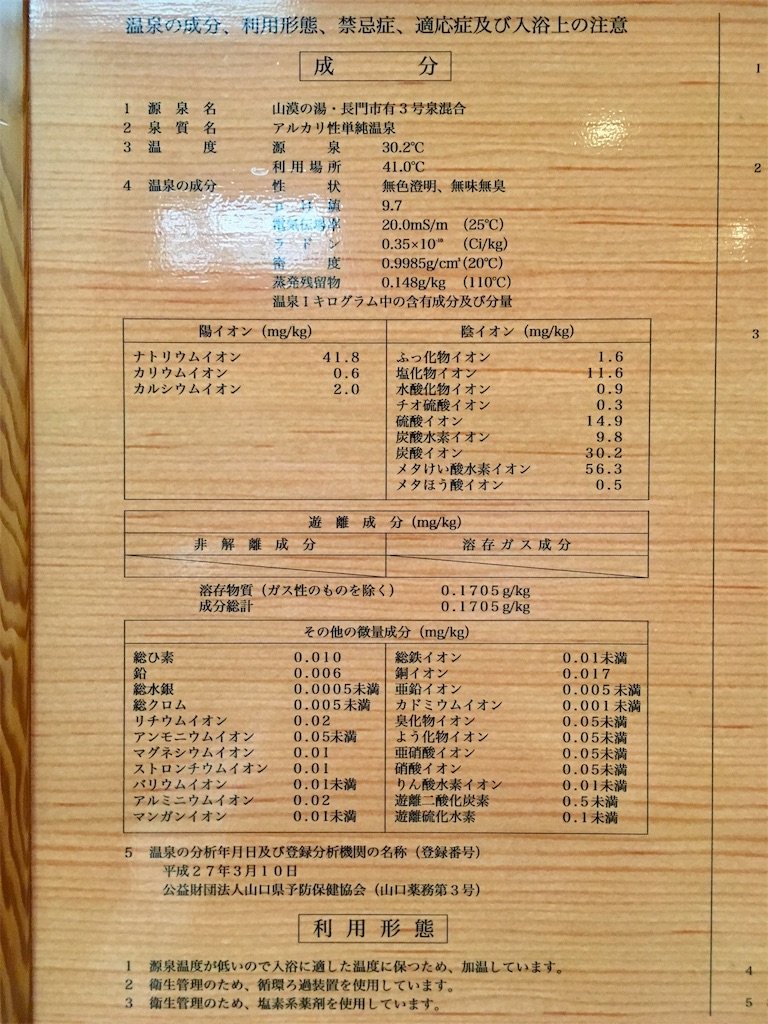 温泉の成分、利用形態、禁忌症、適応症及び入浴上の注意
成 分
1 源泉名 山漠の湯・長門市有3号泉混合
2 泉質名 アルカリ性単純温泉
3 温度 源泉 30.2℃
利用場所 41.0℃
4 温泉の成分 性状 無色澄明、無味無臭
pH値 9.7
電気伝導率 20.0mS/m (25℃)
ラドン 0.35×10 (Ci/kg)
密度 0.9985g/cm³(20℃)
蒸発残留物 0.148g/kg (110℃)
温泉1キログラム中の含有成分及び分量
陽イオン (mg/kg) 陰イオン (mg/kg)
ナトリウムイオン 41.8 ふっ化物イオン 1.6
カリウムイオン 0.6 塩化物イオン 11.6
カルシウムイオン 2.0 水酸化物イオン 0.9
チオ硫酸イオン 0.3
硫酸イオン 14.9
炭酸水素イオン 9.8
炭酸イオン 30.2
メタけい酸水素イオン 56.3
メタほう酸イオン 0.5
遊離成分 (mg/kg)
非解離成分 溶存ガス成分
溶存物質(ガス性のものを除く) 0.1705g/kg
成分総計 0.1705g/kg
その他の微量成分 (mg/kg)
総ひ素 0.010 総鉄イオン 0.01未満
鉛 0.006 銅イオン 0.017
総水銀 0.0005未満 亜鉛イオン 0.005未満
総クロム 0.005未満 カドミウムイオン 0.001未満
リチウムイオン 0.02 臭化物イオン 0.05未満
アンモニウムイオン 0.05未満 よう化物イオン 0.05未満
マグネシウムイオン 0.01 亜硝酸イオン 0.05未満
ストロンチウムイオン 0.01 硝酸イオン 0.05未満
バリウムイオン 0.01未満 りん酸水素イオン 0.01未満
アルミニウムイオン 0.02 遊離二酸化炭素 0.5未満
マンガンイオン 0.01未満 遊離硫化水素 0.1未満
5 温泉の分析年月日及び登録分析機関の名称(登録番号)
平成27年3月10日
公益財団法人山口県予防保健協会(山口薬務第3号)
利用形態
1 源泉温度が低いので入浴に適した温度に保つため、加温しています。
2 衛生管理のため、循環ろ過装置を使用しています。
3 衛生管理のため、塩素系薬剤を使用しています。
1
2
3
4
5